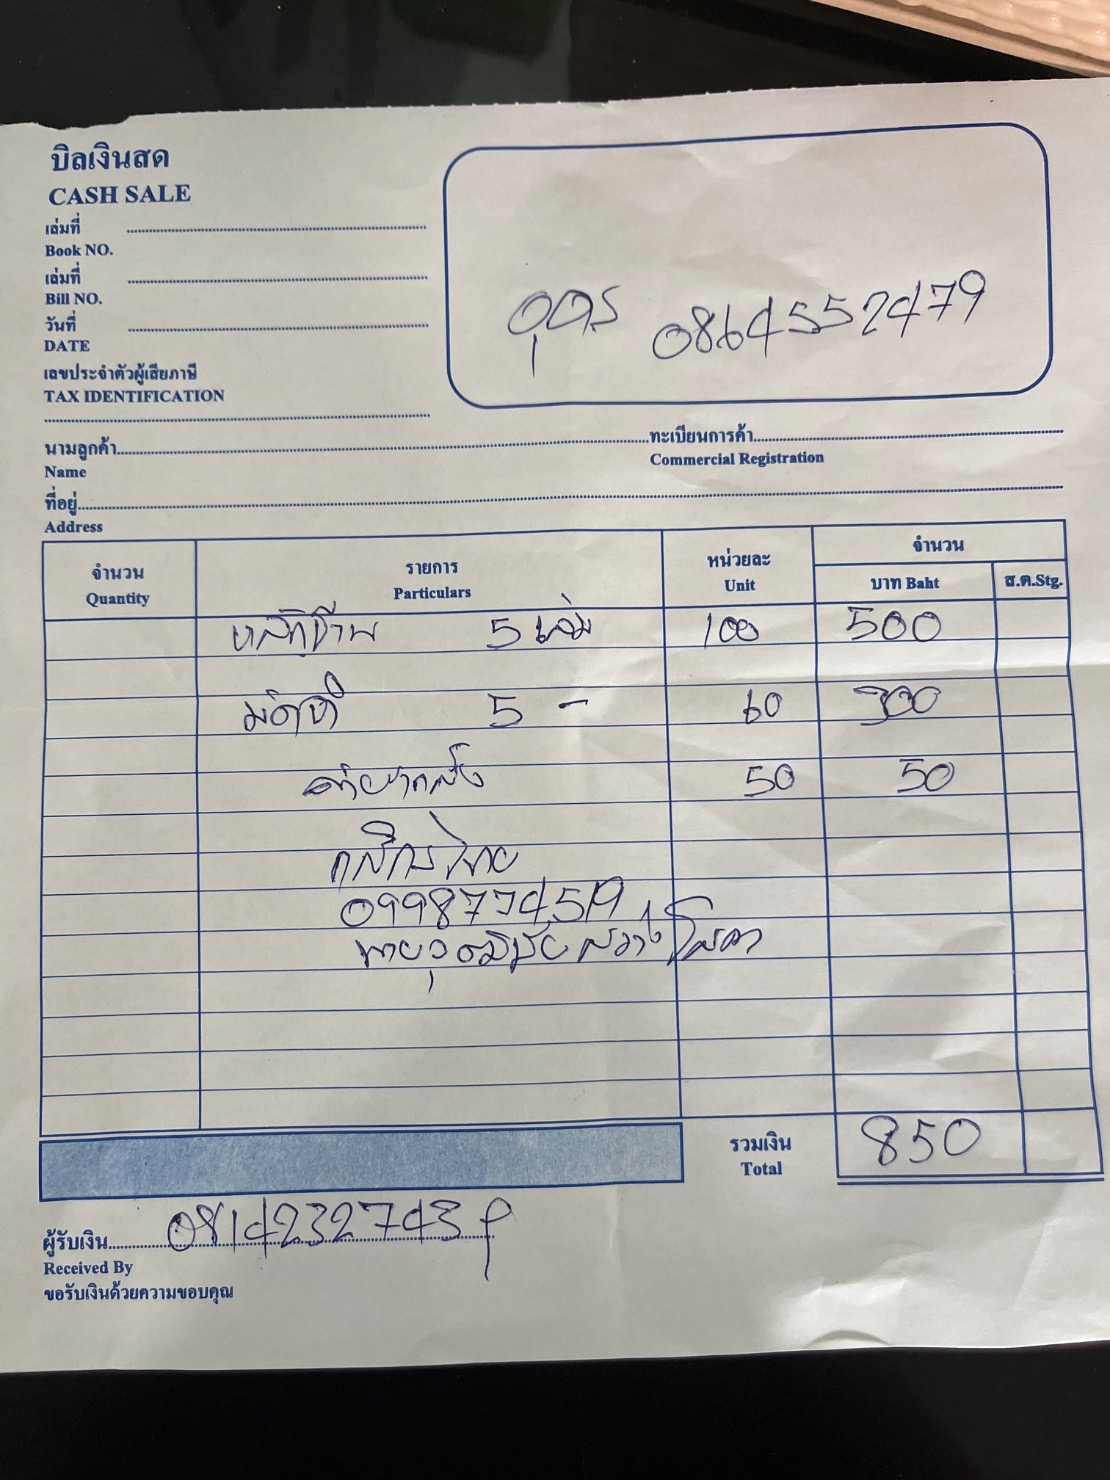 บิลเงินสด
CASH SALE
เล่มที่
Book NO.
เล่มที่
Bill NO.
วันที่
DATE
เลขประจำตัวผู้เสียภาษี
TAX IDENTIFICATION
0864552479
นามลูกค้า ทะเบียนการค้า
Name Commercial Registration
ที่อยู่
Address
จำนวน รายการ หน่วยละ จำนวน
Quantity Particulars Unit บาท Baht ส.ต.Stg.
5 เล่ม 100 500
5 - 60 300
50 50
กสิกรไทย
นายวุฒิชัย สว่างโสดา
รวมเงิน 850
Total
ผู้รับเงิน 0814232743
Received By
ขอรับเงินด้วยความขอบคุณ